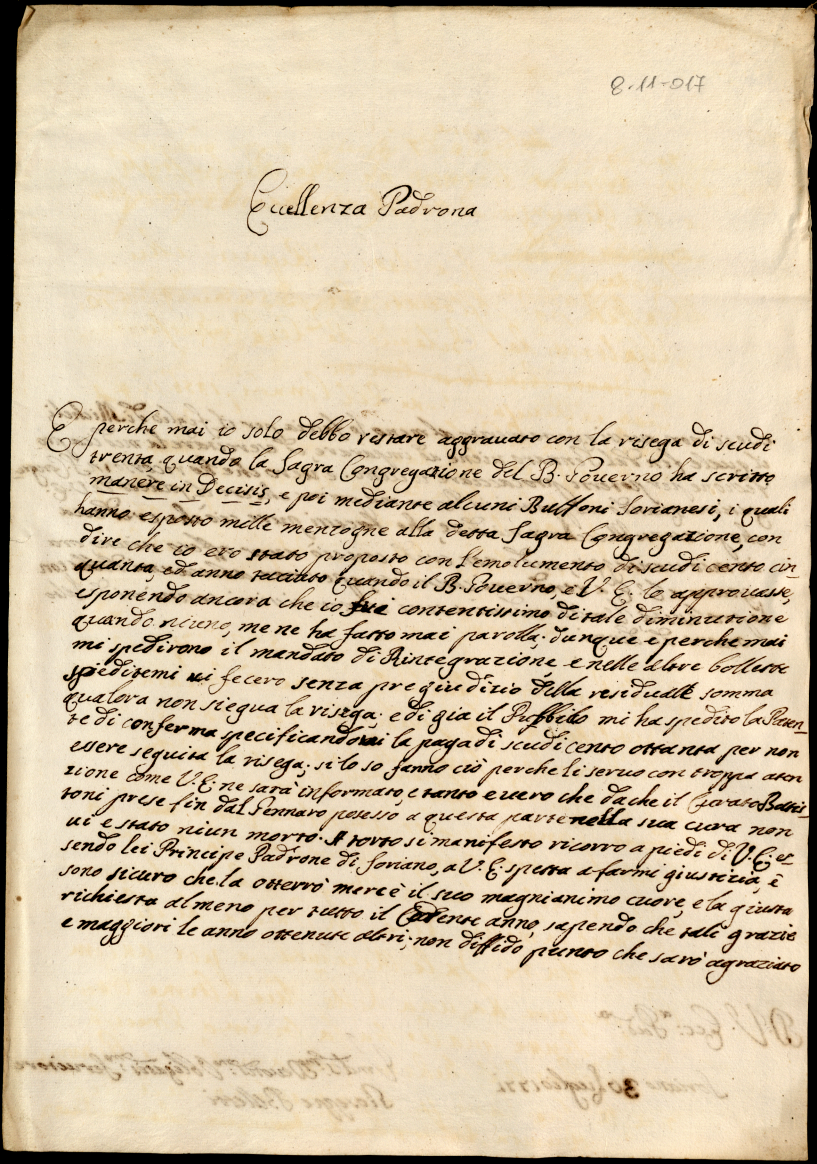 8-11-017
Eccellenza Padrona
E perche mai io solo debbo restare aggravato con la risega di scudi
trenta, quando la Sagra Congregazione del B. Governo ha scritto
manere in Decisis, e poi mediante alcuni Buffoni Sorianesi, i quali
hanno esposto mille menzogne alla detta Sagra Congregazione, con
dire che io ero stato proposto con l'emolumento di scudi cento cin-
quanta, ed anno tacciuto quando il B. Governo, e V. E. lo approvasse,
esponendo ancora che io fui contentissimo di tale diminutione
quando niuno, me ne ha fatto mai parolla; dunque e perche mai
mi spedirono il mandato di Rintegrazione, e nelle altre bollette
speditemi vi fecero senza pregiudizio della residuale somma
qualora non siegua la risega. e di gia il Pubbilo mi ha spedito la Paten-
te di conferma specificandomi la paga di scudi cento ottanta per non
essere seguita la risega; si lo so fanno ciò perche li servo con troppa aten
zione come V. E. ne sarà informato, e tanto e vero che da che il Curato Battis-
toni prese fin dal Gennaro posesso a questa parte nella sua cura non
vi e stato niun morto. A torto si manifesto ricorro a piedi di V. E. es-
sendo lei Principe Padrone di Soriano, a V. E. spetta a farmi giustizia, è
sono sicuro che la otterrò mercè il suo magnianimo cuore, e la giusta
richiesta almeno per tutto il Cadente anno, sapendo che tali grazie
e maggiori le anno ottenute altri; non diffido punto che sarò agraziato